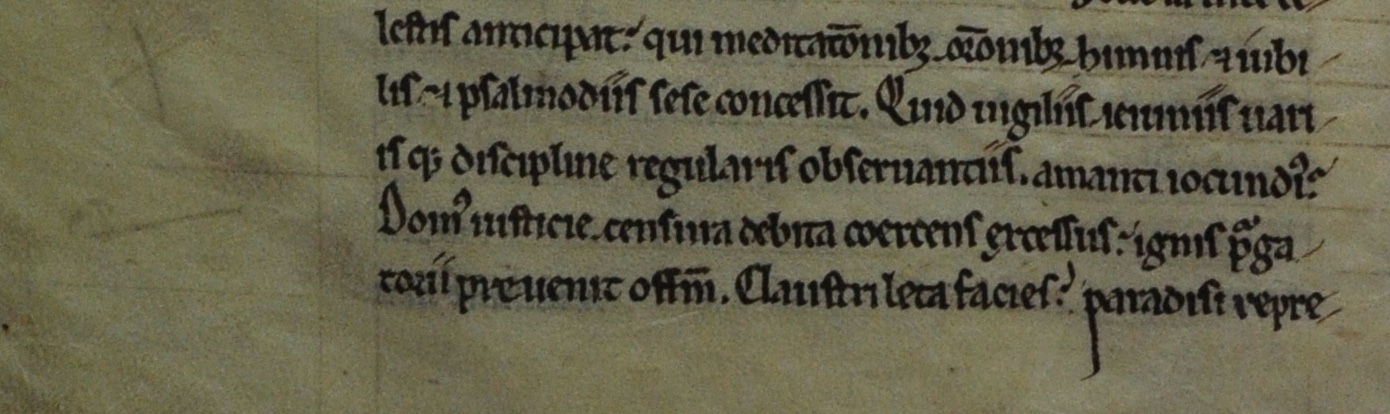 lestis anticipat. qui meditatōnibꝫ. or̄onibꝫ. himnis. ⁊ iubi
lis. ⁊ psalmodiis sese concessit. Quid uigiliis. ieiuniis uari
is qꝫ discipline regularis obseruantiis. amanti iocundiꝰ?
Domꝰ iusticie. censura debita coercens excessus. ignis pͥga
torii preuenit offm̄. Claustri leta facies? paradisi repre